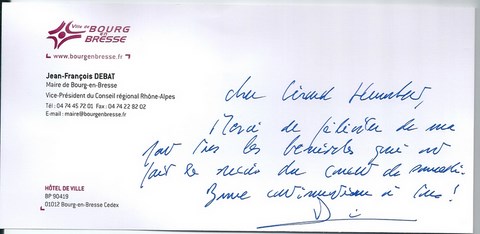 Ville de BOURG
en BRESSE
www.bourgenbresse.fr
Jean-François DEBAT
Maire de Bourg-en-Bresse
Vice-Président du Conseil régional Rhône-Alpes
Tél : 04 74 45 72 01 Fax : 04 74 22 82 02
E-mail : maire@bourgenbresse.fr
Cher
Merci de féliciter de ma
part tous les bénévoles qui ont
fait le succès du de samedi.
Bonne continuation à tous !
HÔTEL DE VILLE
BP 90419
01012 Bourg-en-Bresse Cedex